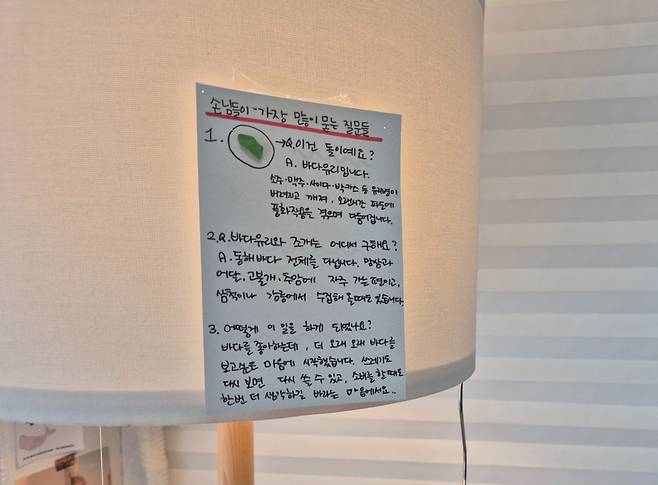 손님들이 가장 많이 묻는 질문들
1. →Q.이건 돌이예요?
A. 바다유리입니다.
소주·맥주·사이다·박카스 등 유리병이
버려지고 깨져, 오랜시간 파도에
풍화작용을 겪으며 다듬어집니다.
2.Q.바다유리와 조개는 어디서 구해요?
A.동해바다 전체를 다닙니다. 망상과
어달, 고불개, 추암에 자주 가는편이고,
삼척이나 강릉에서 수집해 올때도 있습니다.
3. 어떻게 이 일을 하게 되었나요?
바다를 좋아하는데, 더 오래 오래 바다를
보고싶은 마음에 시작했습니다. 쓰레기도
다시 보면 다시 쓸 수 있고, 소비를 한때도
한번 더 생각하길 바라는 마음에서요..